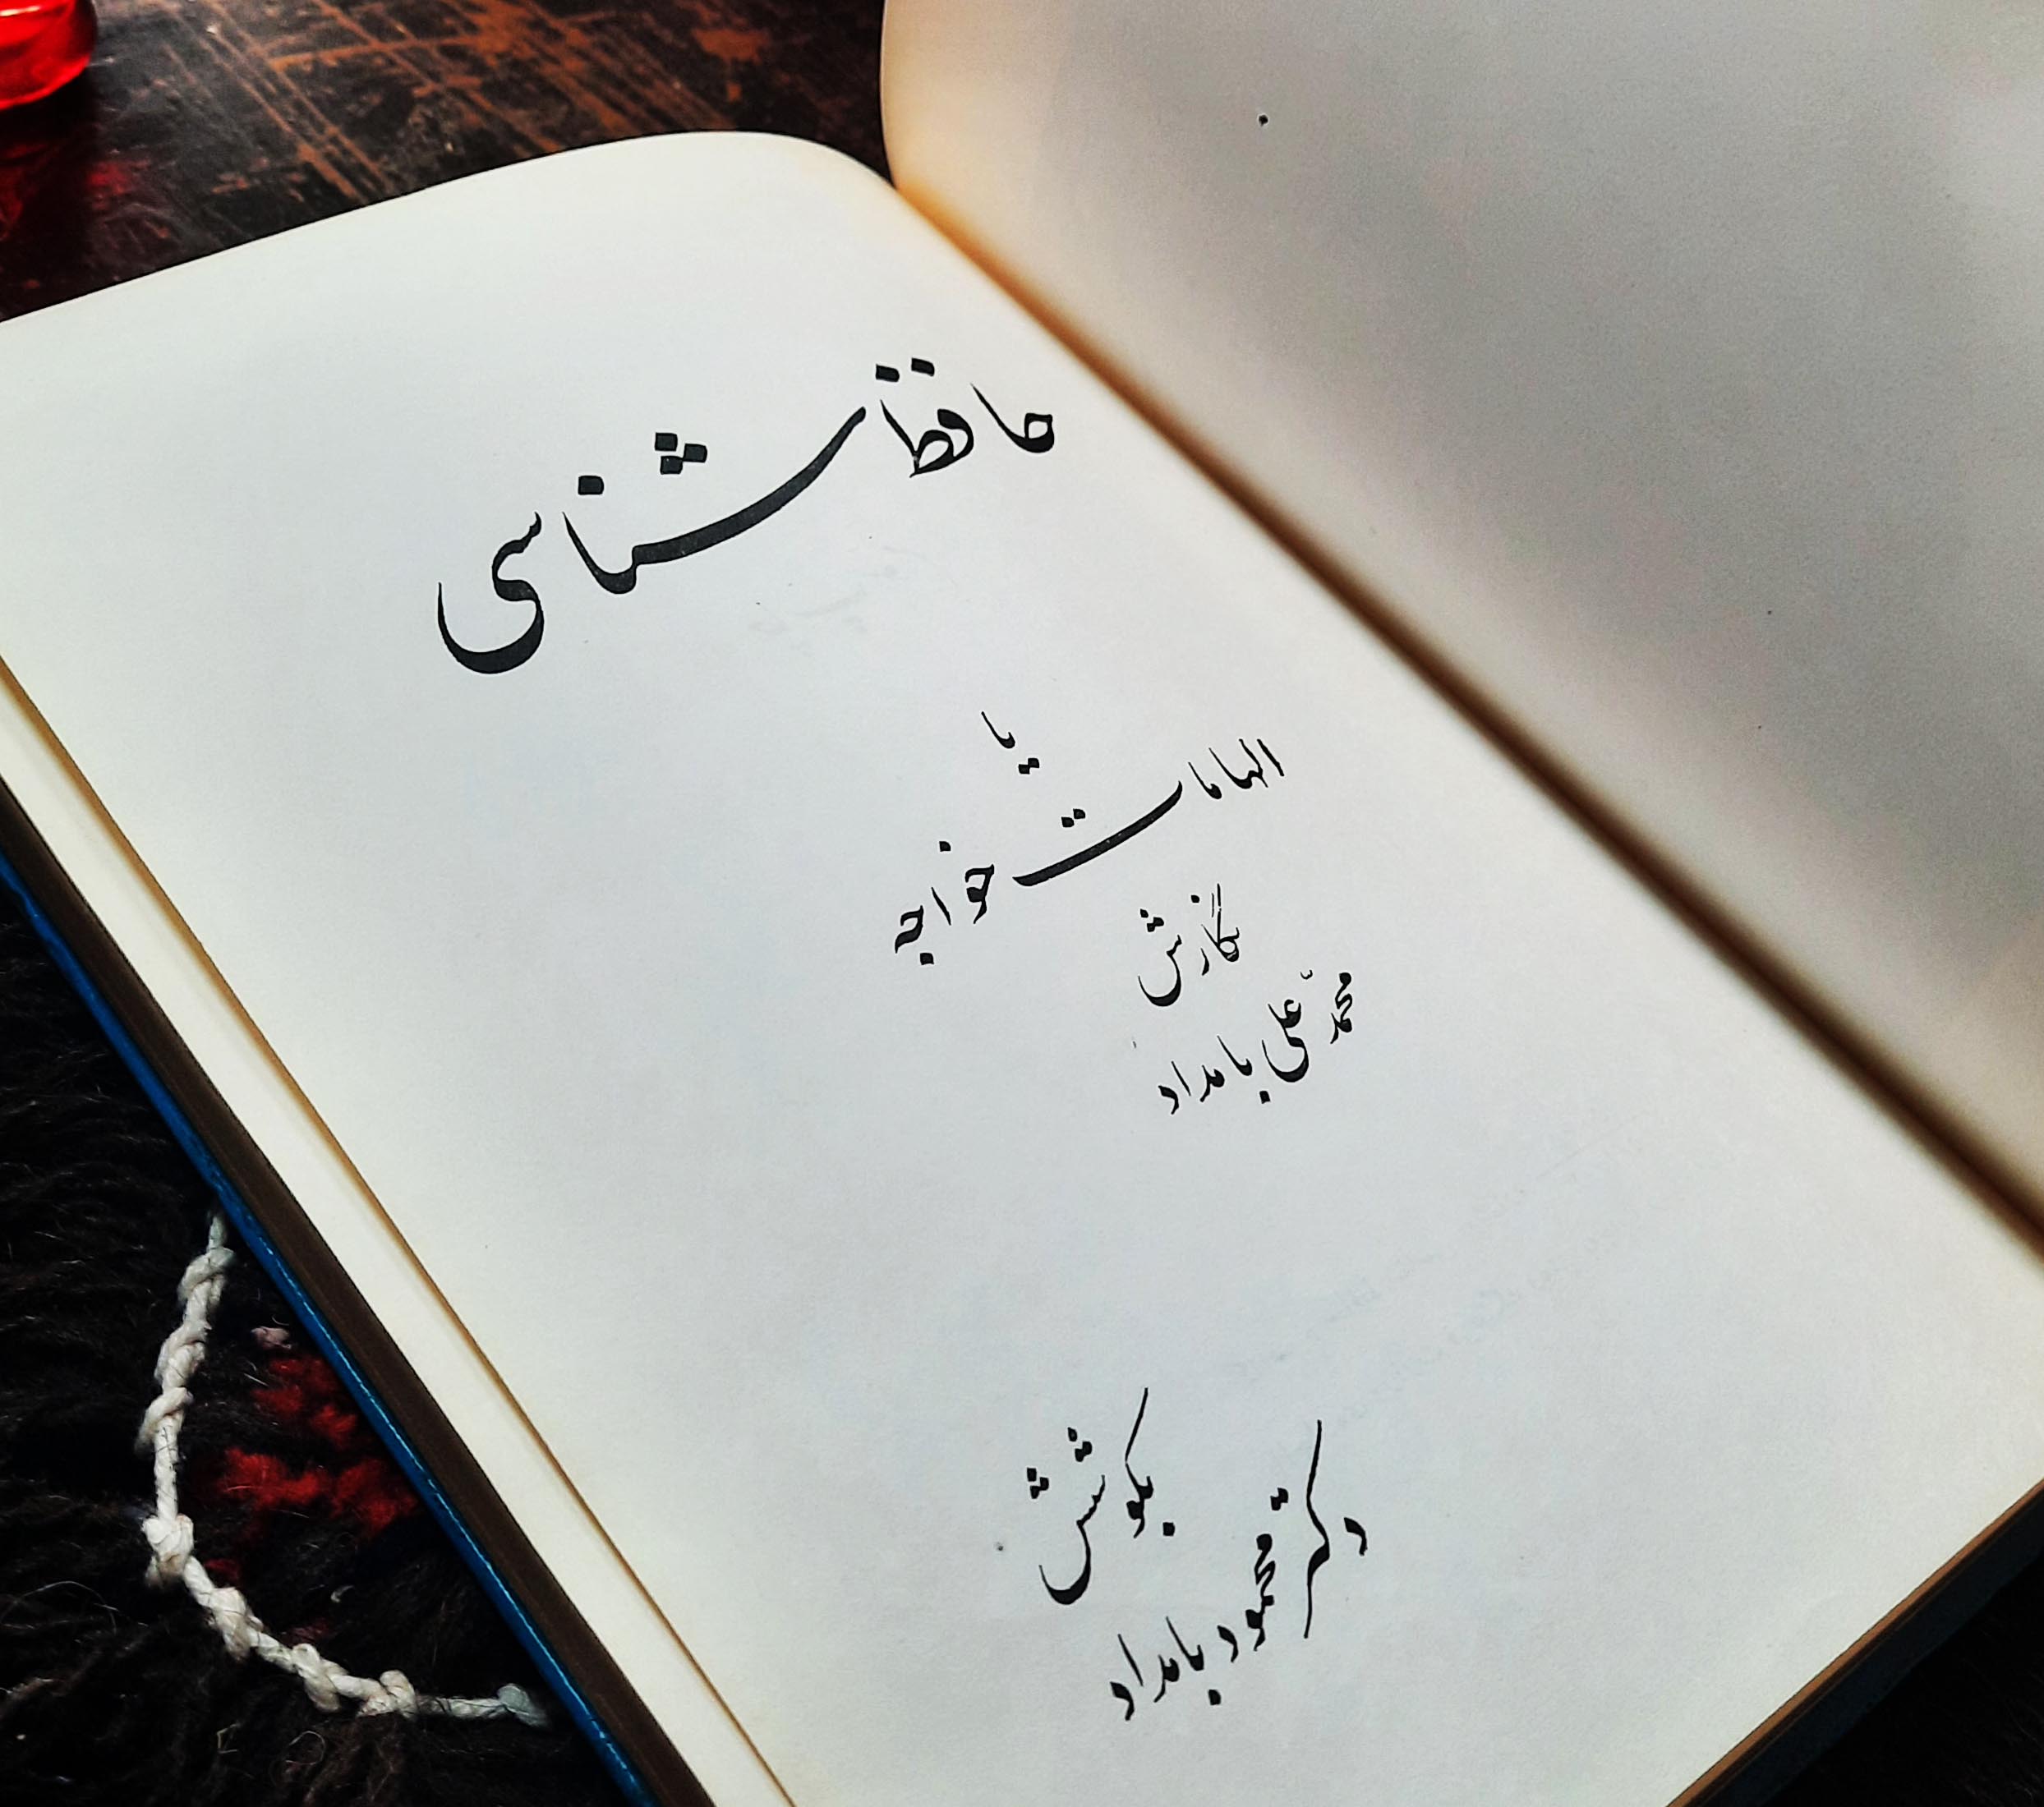 حافظ شناسی
یا
الهامات خواجه
نگارش
محمّد علی بامداد
بکوشش
دکتر محمود بامداد